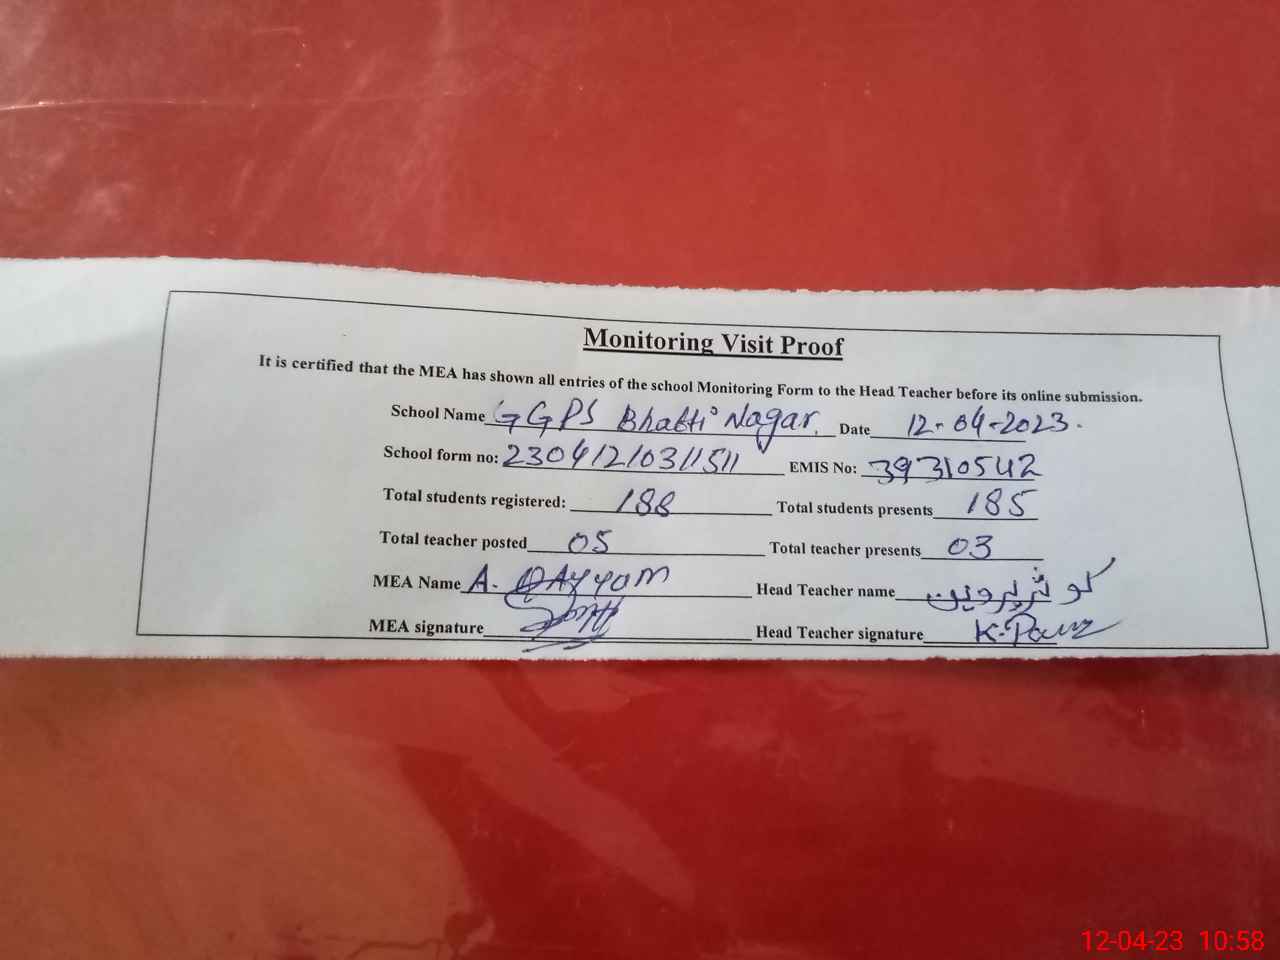 Monitoring Visit Proof
It is certified that the MEA has shown all entries of the school Monitoring Form to the Head Teacher before its online submission.
School Name GGPS Bhatti Nagar. Date 12-04-2023.
School form no: 23041210311511 EMIS No: 39310542
Total students registered: 188 Total students presents 185
Total teacher posted 05 Total teacher presents 03
MEA Name A. QAYYOM Head Teacher name کوثر پروین
MEA signature Head Teacher signature K. Parvz
12-04-23 10:58